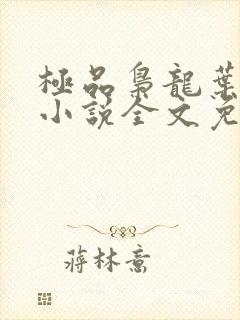 極品梟龍葉
小說全文免
蔣林意